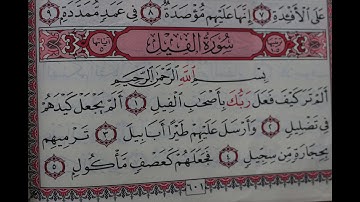 عَلَى الْأَفْئِدَةِ ٧ إِنَّهَا عَلَيْهِم مُّؤْصَدَةٌ ٨ فِي عَمَدٍ مُّمَدَّدَةٍ ٩
سُورَةُ الْفِيلِ
بِسْمِ اللَّهِ الرَّحْمَٰنِ الرَّحِيمِ
أَلَمْ تَرَ كَيْفَ فَعَلَ رَبُّكَ بِأَصْحَابِ الْفِيلِ ١ أَلَمْ يَجْعَلْ كَيْدَهُمْ
فِي تَضْلِيلٍ ٢ وَأَرْسَلَ عَلَيْهِمْ طَيْرًا أَبَابِيلَ ٣ تَرْمِيهِم
بِحِجَارَةٍ مِّن سِجِّيلٍ ٤ فَجَعَلَهُمْ كَعَصْفٍ مَّأْكُولٍ ٥
٦٠١